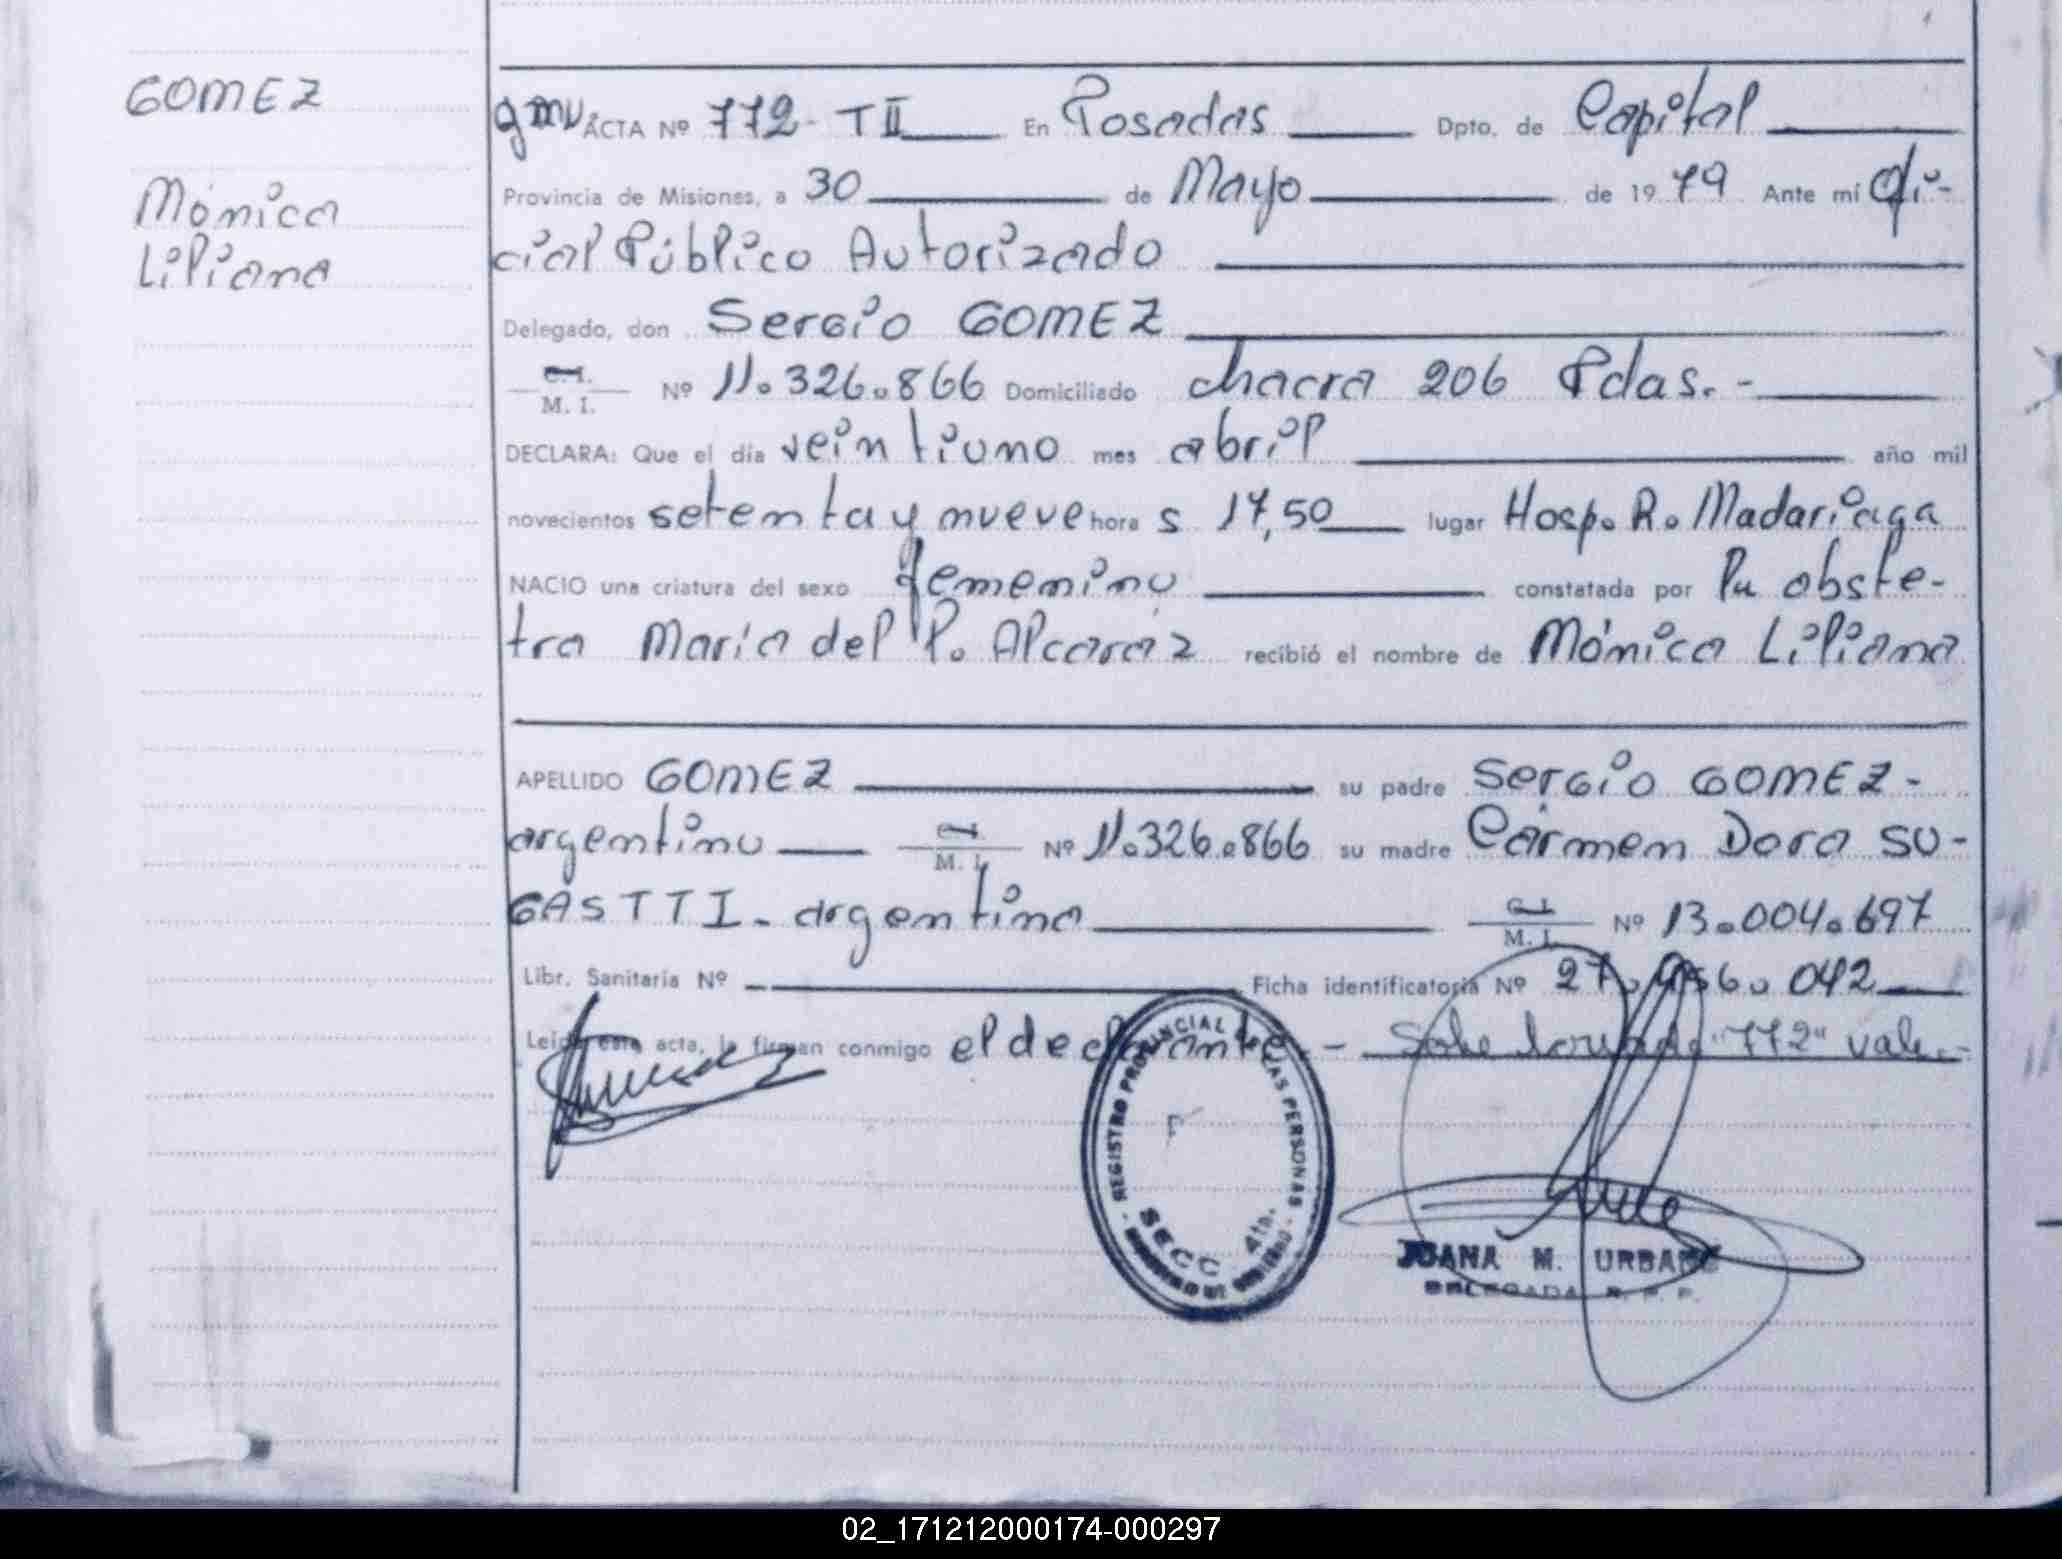 GOMEZ
Mónica
Liliana
gmv ACTA Nº 772 - T II En Posadas Dpto. de Capital
Provincia de Misiones, a 30 de Mayo de 1979 Ante mí Ofi-
cial Público Autorizado
Delegado, don Sergio GOMEZ
C. I.
M. I. Nº 11.326.866 Domiciliado chacra 206 Pdas. -
DECLARA: Que el día veintiuno mes abril año mil
novecientos setenta y nueve hora s 17,50 lugar Hosp. R. Madariaga
NACIO una criatura del sexo femenino constatada por la obste-
tra María del P. Alcaráz recibió el nombre de Mónica Liliana
APELLIDO GOMEZ su padre Sergio GOMEZ -
argentino C. I. M. I. Nº 11.326.866 su madre Cármen Dora SU-
GASTTI - argentina C. I. M. I. Nº 13.004.697
Libr. Sanitaria Nº - Ficha identificatoria Nº 27.956.042
Leida esta acta, la firman conmigo el declarante. - Sobre borrado "772" vale. -
REGISTRO PROVINCIAL DE LAS PERSONAS
SECC. 4ta.
JUANA M. URBANO
DELEGADA R. P. P.
02_171212000174-000297